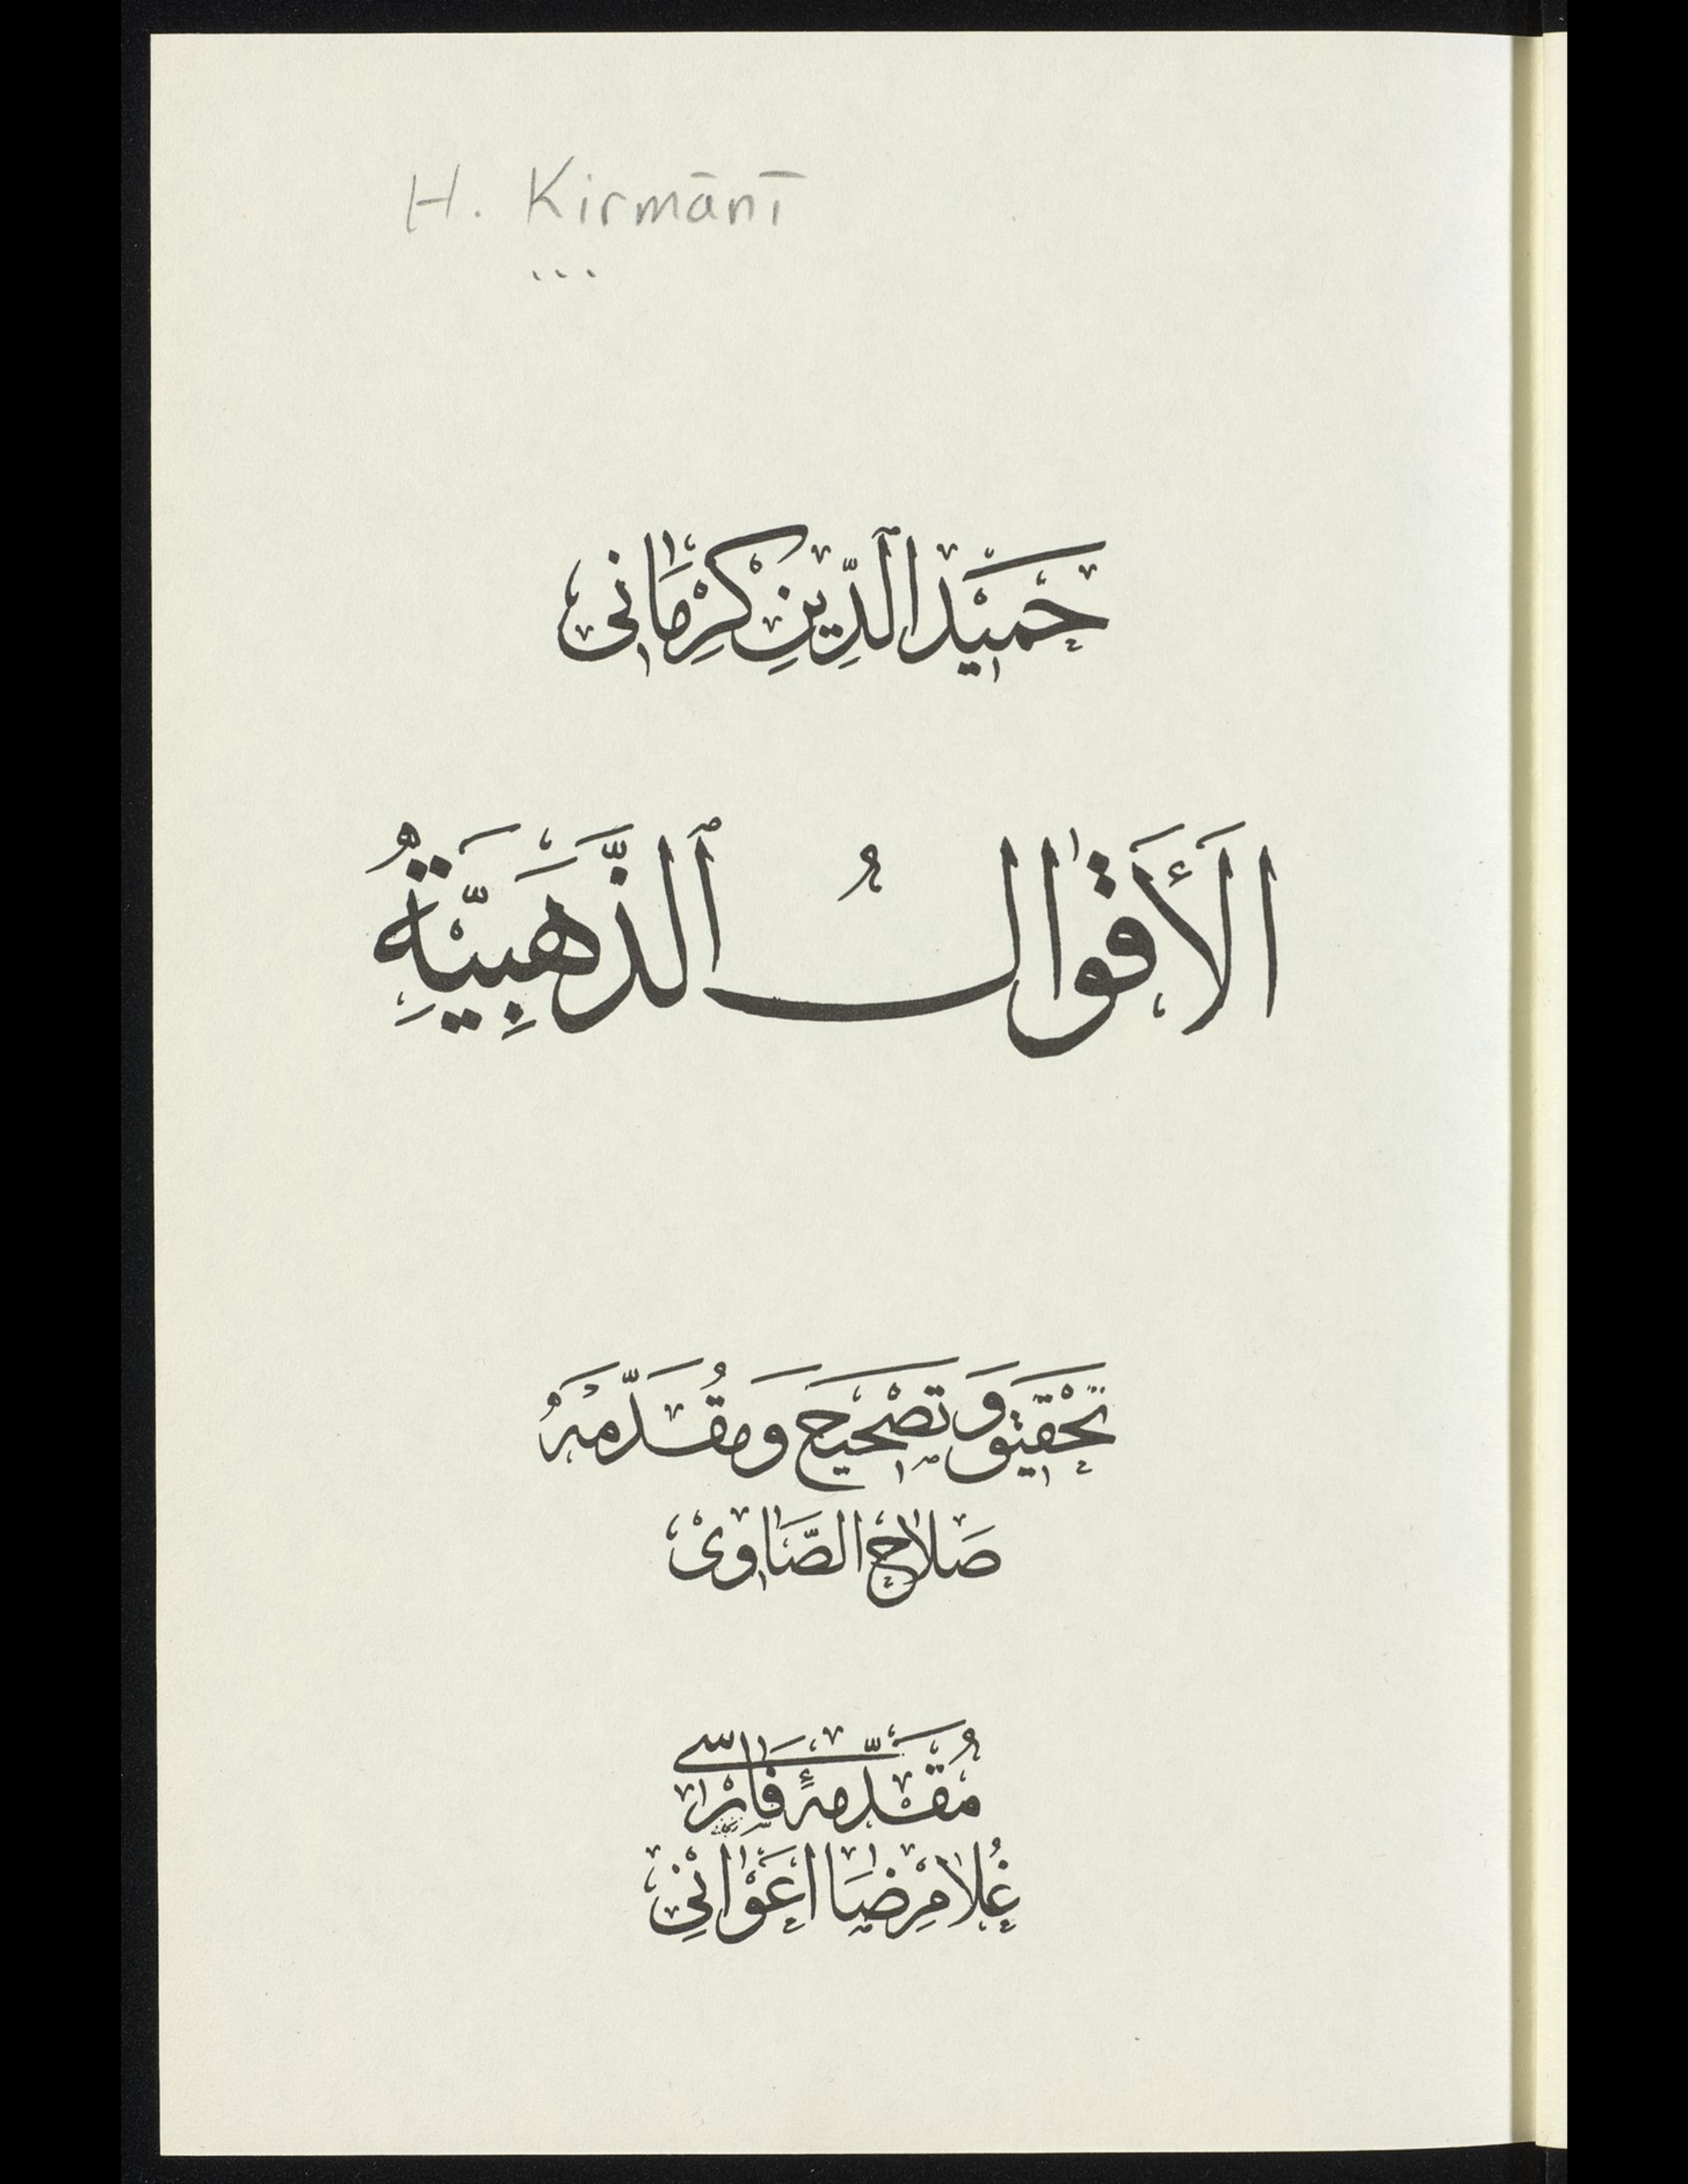 H. Kirmānī
حَمِيْدالدِّينِ كِرْمَانى
الَأَقوَالُ ٱلذَّهَبِيَّةُ
تَحْقيق وَ تَصْحيح وَ مُقَدّمه
صَلاح الصَّاوى
مُقَدّمهٔ فارْسى
غُلامرِضَا اَعْوَانِى